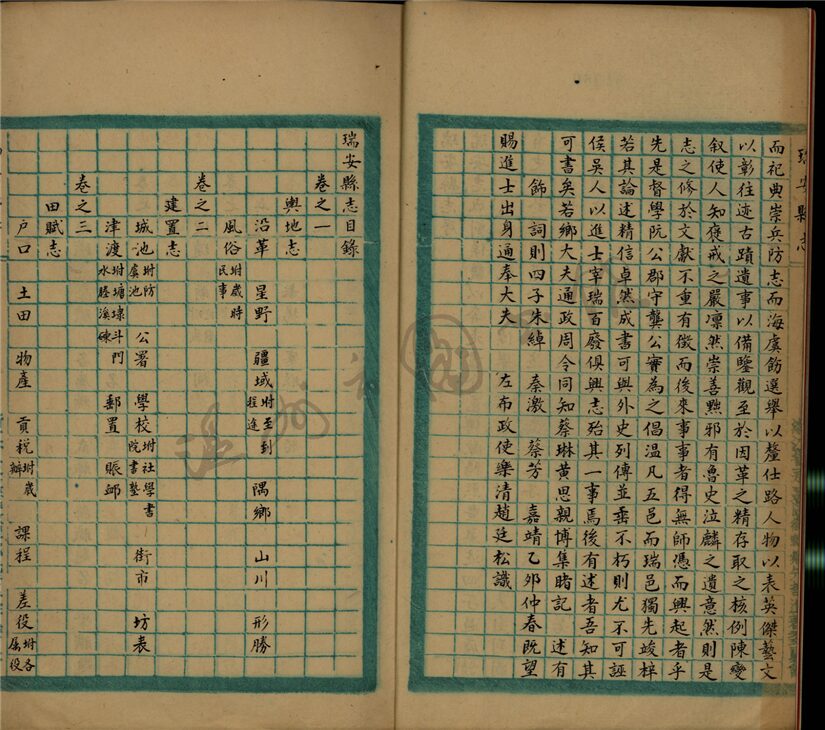 瑞安縣志
而祀典崇兵防志而海虞飭選舉以釐仕路人物以表英傑藝文
以彰往迹古蹟遺事以備鑒觀至於因革之精存取之核例陳變
叙使人知褒戒之嚴凛然崇善黜邪有魯史泣麟之遺意然則是
志之修於文獻不重有徵而後來事事者得無師憑而興起者乎
先是督學阮公郡守龔公實為之倡溫凡五邑而瑞邑獨先竣梓
若其論述精信卓然成書可與外史列傳並垂不朽則尤不可誣
侯吳人以進士宰瑞百廢俱興志殆其一事焉後有述者吾知其
可書矣若鄉大夫通政周令同知蔡琳黃思親博集睹記 述有
飾 詞則四子朱綽 秦激 蔡芳 嘉靖乙夘仲春既望
賜進士出身通奉大夫 左布政使樂清趙廷松識
瑞安縣志目錄
卷之一
輿地志
沿革 星野 疆域坿至到程途 隅鄉 山川 形勝
風俗坿歲時民事
卷之二
建置志
城池坿防虞池 公署 學校坿社學書院書塾 街市 坊表
津渡坿塘埭斗門水塍溪𥓓 郵置 賑䘏
卷之三
田賦志
戶口 土田 物產 貢税坿歲辦 課程 差役坿各屬役